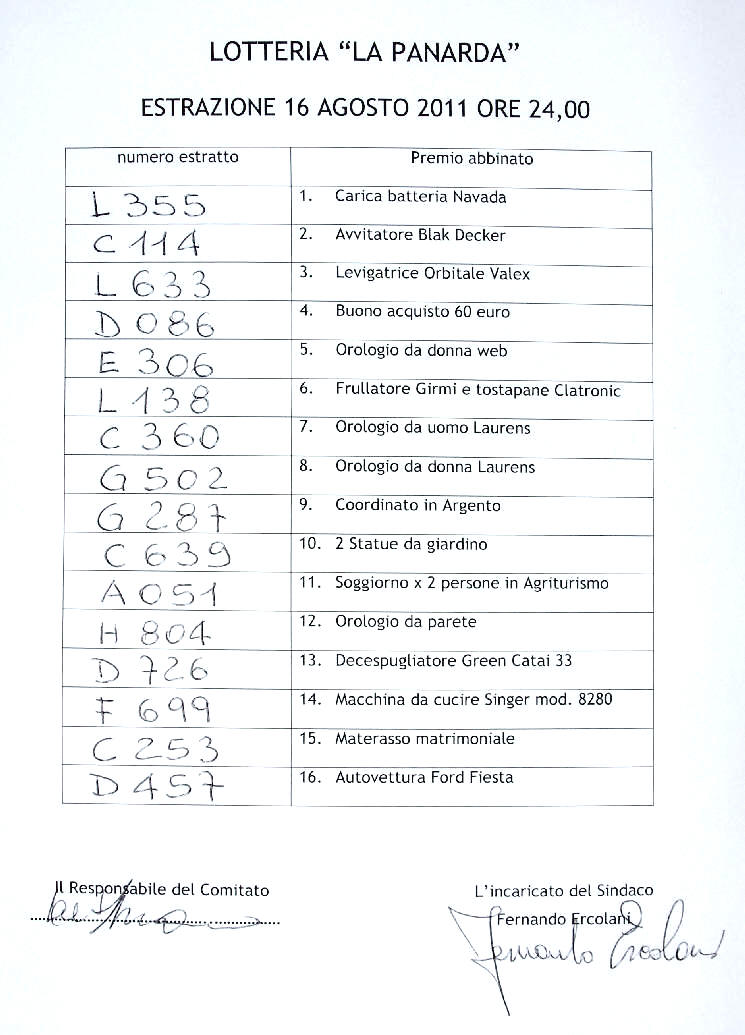 LOTTERIA “LA PANARDA”
ESTRAZIONE 16 AGOSTO 2011 ORE 24,00
numero estratto Premio abbinato
L 355 1. Carica batteria Navada
C 114 2. Avvitatore Blak Decker
L 633 3. Levigatrice Orbitale Valex
D 086 4. Buono acquisto 60 euro
E 306 5. Orologio da donna web
L 138 6. Frullatore Girmi e tostapane Clatronic
C 360 7. Orologio da uomo Laurens
G 502 8. Orologio da donna Laurens
G 287 9. Coordinato in Argento
C 639 10. 2 Statue da giardino
A 051 11. Soggiorno x 2 persone in Agriturismo
H 804 12. Orologio da parete
D 726 13. Decespugliatore Green Catai 33
F 699 14. Macchina da cucire Singer mod. 8280
C 253 15. Materasso matrimoniale
D 457 16. Autovettura Ford Fiesta
Il Responsabile del Comitato L’incaricato del Sindaco
Fernando Ercolani
Fernando Ercolani